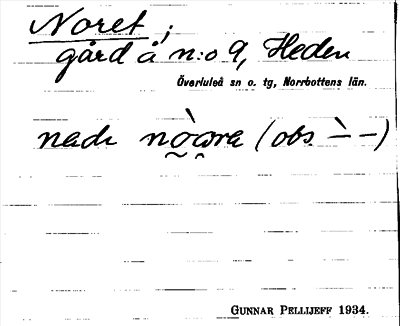 Noret;
gård å n:o 9, Heden
Överluleå sn o. tg, Norrbottens län.
(obs. `– –)
GUNNAR PELLIJEFF 1934.